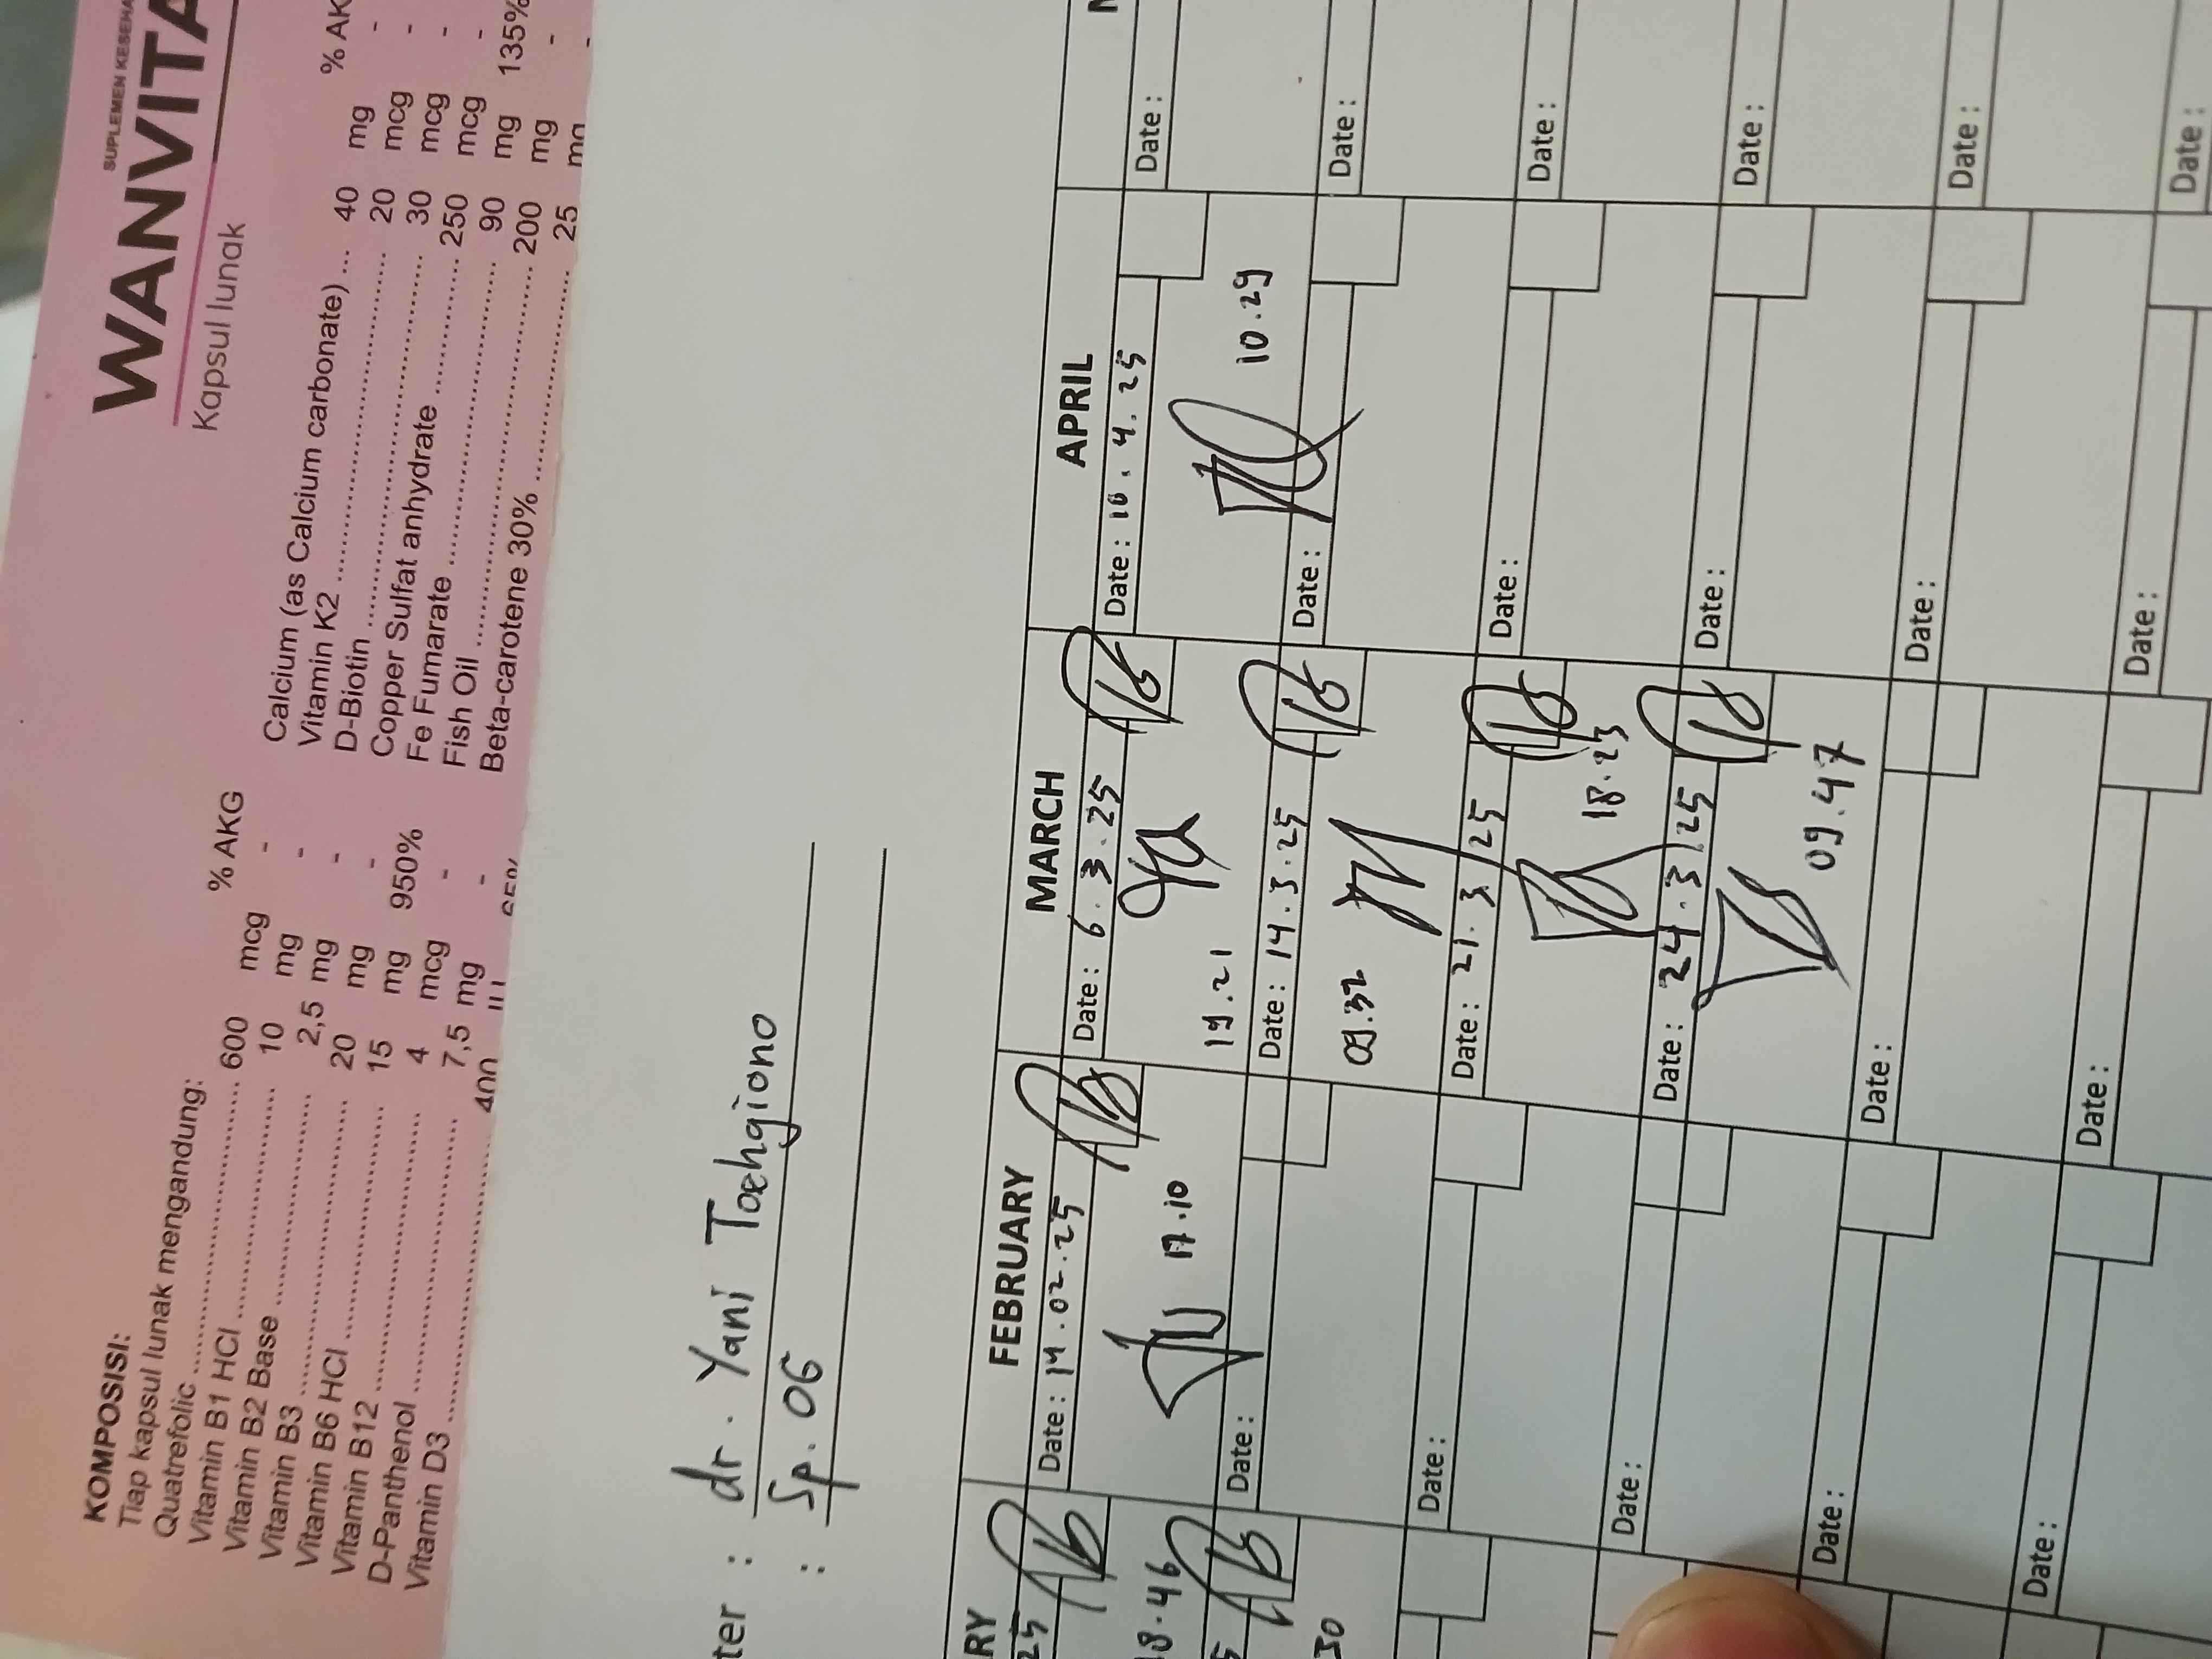 SUPLEMEN KESEHA
WANVITA
Kapsul lunak
KOMPOSISI:
Tiap kapsul lunak mengandung:
% AKG
Quatrefolic 600 mcg -
Vitamin B1 HCl 10 mg -
Vitamin B2 Base 2,5 mg -
Vitamin B3 20 mg -
Vitamin B6 HCl 15 mg 950%
Vitamin B12 4 mcg -
D-Panthenol 7,5 mg -
Vitamin D3 400
% AK
Calcium (as Calcium carbonate) ... 40 mg -
Vitamin K2 20 mcg -
D-Biotin 30 mcg -
Copper Sulfat anhydrate 250 mcg -
Fe Fumarate 90 mg 135%
Fish Oil 200 mg -
Beta-carotene 30% 25 mg -
ter : dr. Yani Toehgiono
: Sp. OG
RY FEBRUARY MARCH APRIL
25 Date: 14.02.25 Date: 6.3.25 Date: 10.4.25 Date:
8.46 17.10 19.21 10.29
5 Date: Date: 14.3.25 Date: Date:
30 09.32
Date: Date: 21.3.25 Date: Date:
18.23
Date: Date: 24.3.25 Date: Date:
09.47
Date: Date: Date: Date:
Date: Date: Date: Date: